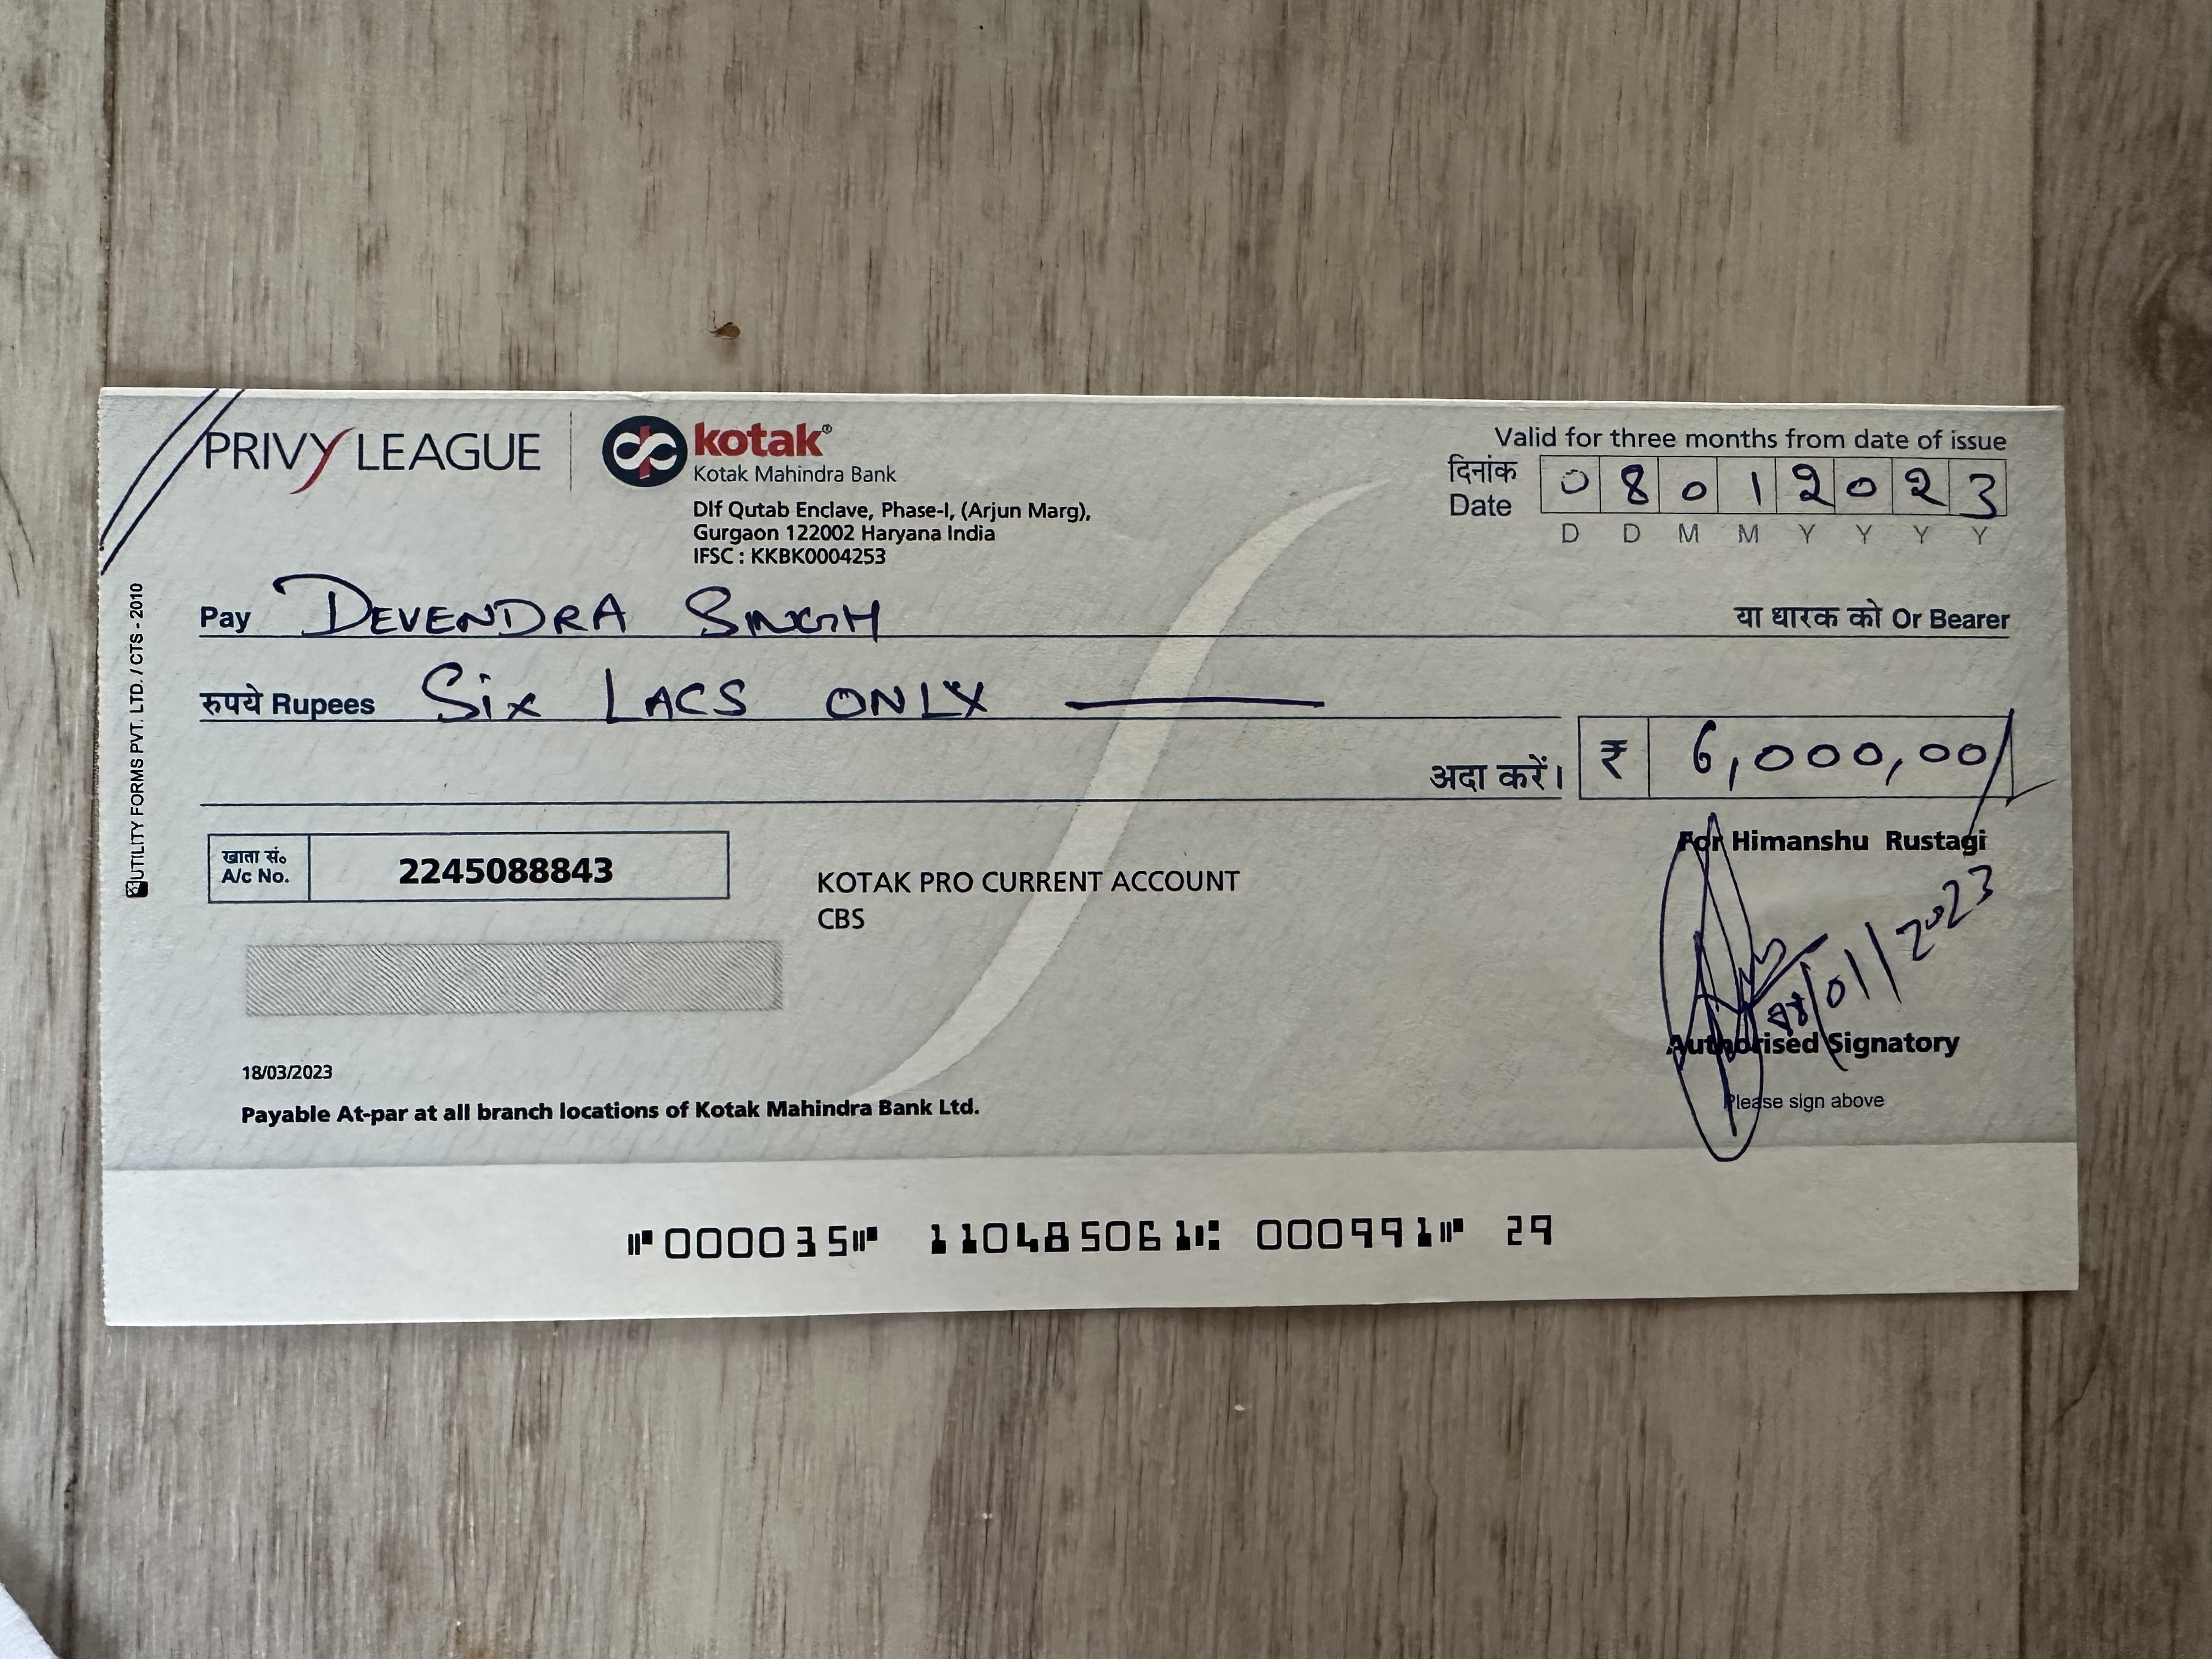 PRIVY LEAGUE
kotak®
Kotak Mahindra Bank
Dlf Qutab Enclave, Phase-I, (Arjun Marg),
Gurgaon 122002 Haryana India
IFSC : KKBK0004253
Valid for three months from date of issue
दिनांक
Date
0 8 0 1 2 0 2 3
D D M M Y Y Y Y
UTILITY FORMS PVT. LTD. / CTS - 2010
Pay DEVENDRA SINGH या धारक को Or Bearer
रुपये Rupees Six LACS ONLY
अदा करें। ₹ 6,000,00/
खाता सं॰
A/c No.
2245088843
KOTAK PRO CURRENT ACCOUNT
CBS
For Himanshu Rustagi
08/01/2023
Authorised Signatory
Please sign above
18/03/2023
Payable At-par at all branch locations of Kotak Mahindra Bank Ltd.
⑈000035⑈ 110485061⑆ 000991⑈ 29